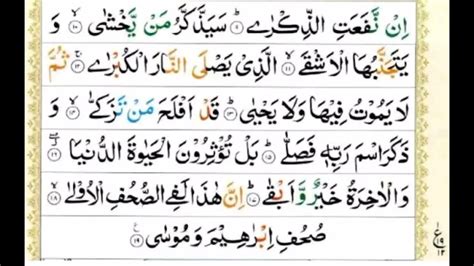 اِنْ نَّفَعَتِ الذِّكْرٰىؕ ۹ سَيَذَّكَّرُ مَنْ يَّخْشٰىۙ ۱۰ وَ
يَتَجَنَّبُهَا الْاَشْقَىۙ ۱۱ الَّذِىْ يَصْلَى النَّارَ الْكُبْرٰىۚ ۱۲ ثُمَّ
لَا يَمُوْتُ فِيْهَا وَلَا يَحْيٰىؕ ۱۳ قَدْ اَفْلَحَ مَنْ تَزَكّٰىۙ ۱۴ وَ
ذَكَرَ اسْمَ رَبِّهٖ فَصَلّٰىؕ ۱۵ بَلْ تُؤْثِرُوْنَ الْحَيٰوةَ الدُّنْيَاۖ ۱۶
وَ الْاٰخِرَةُ خَيْرٌ وَّ اَبْقٰىؕ ۱۷ اِنَّ هٰذَا لَفِى الصُّحُفِ الْاُوْلٰىۙ ۱۸
صُحُفِ اِبْرٰهِيْمَ وَ مُوْسٰى ۱۹ ع ۱۹ ۱۲